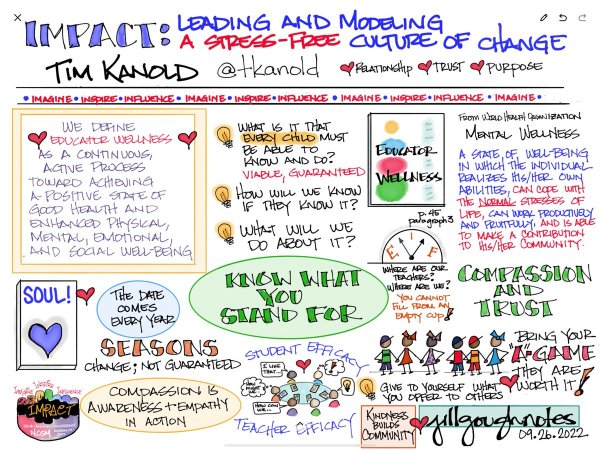 IMPACT: LEADING AND MODELING
A STRESS-FREE CULTURE OF CHANGE
TIM KANOLD @tkanold RELATIONSHIP TRUST PURPOSE
• IMAGINE • INSPIRE • INFLUENCE • IMAGINE • INSPIRE • INFLUENCE • IMAGINE • INSPIRE • INFLUENCE • IMAGINE •
WE DEFINE
EDUCATOR WELLNESS
AS A CONTINUOUS,
ACTIVE PROCESS
TOWARD ACHIEVING
A POSITIVE STATE OF
GOOD HEALTH AND
ENHANCED PHYSICAL,
MENTAL, EMOTIONAL,
AND SOCIAL WELL-BEING
WHAT IS IT THAT
EVERY CHILD MUST
BE ABLE TO
KNOW AND DO?
VIABLE, GUARANTEED
HOW WILL WE KNOW
IF THEY KNOW IT?
WHAT WILL WE
DO ABOUT IT?
EDUCATOR
WELLNESS
p. 45
paragraph 3
FROM WORLD HEALTH ORGANIZATION
MENTAL WELLNESS
A STATE OF WELL-BEING
IN WHICH THE INDIVIDUAL
REALIZES HIS/HER OWN
ABILITIES, CAN COPE WITH
THE NORMAL STRESSES OF
LIFE, CAN WORK PRODUCTIVELY
AND FRUITFULLY, AND IS ABLE
TO MAKE A CONTRIBUTION
TO HIS/HER COMMUNITY.
E F
WHERE ARE OUR
TEACHERS?
WHERE ARE WE?
YOU CANNOT
FILL FROM AN
EMPTY CUP!
SOUL!
THE DATE
COMES
EVERY YEAR
KNOW WHAT
YOU
STAND FOR
COMPASSION
AND
TRUST
SEASONS
CHANGE; NOT GUARANTEED
STUDENT EFFICACY
I LIKE THAT...
HOW CAN WE...
TEACHER EFFICACY
BRING YOUR
"A"-GAME
THEY ARE
WORTH IT!
GIVE TO YOURSELF WHAT
YOU OFFER TO OTHERS
IMPACT
NCSM
COMPASSION IS
AWARENESS + EMPATHY
IN ACTION
KINDNESS
BUILDS
COMMUNITY
jillgoughnotes
09.26.2022